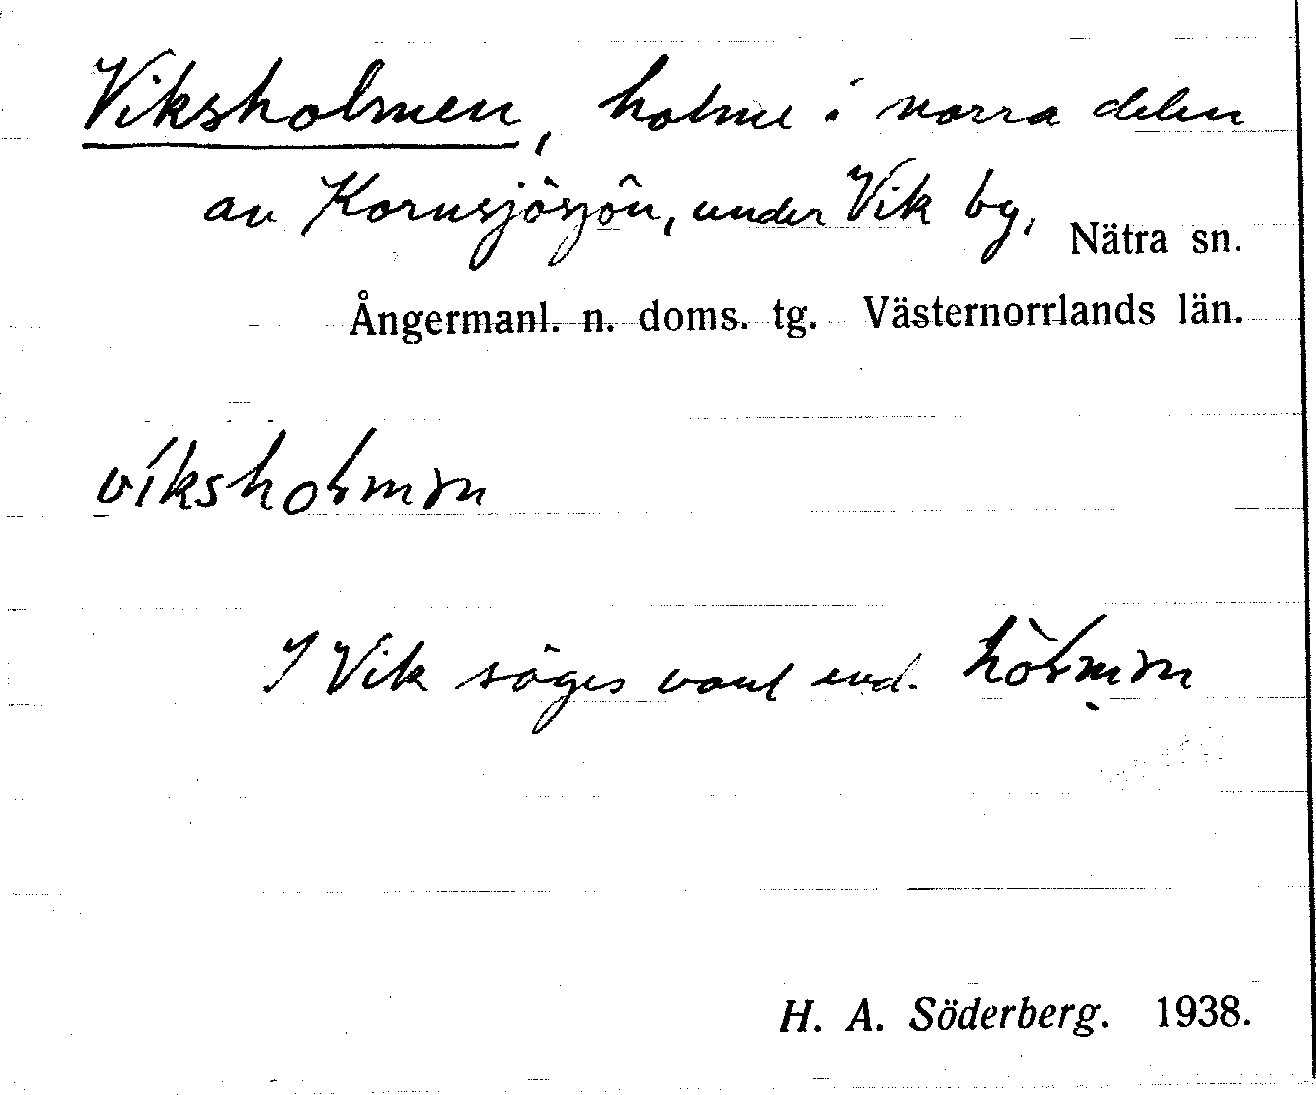 Viksholmen, holme i norra delen
av Kornsjösjön, under Vik by, Nätra sn.
Ångermanl. n. doms. tg. Västernorrlands län.
I Vik säges vanl end.
H. A. Söderberg. 1938.